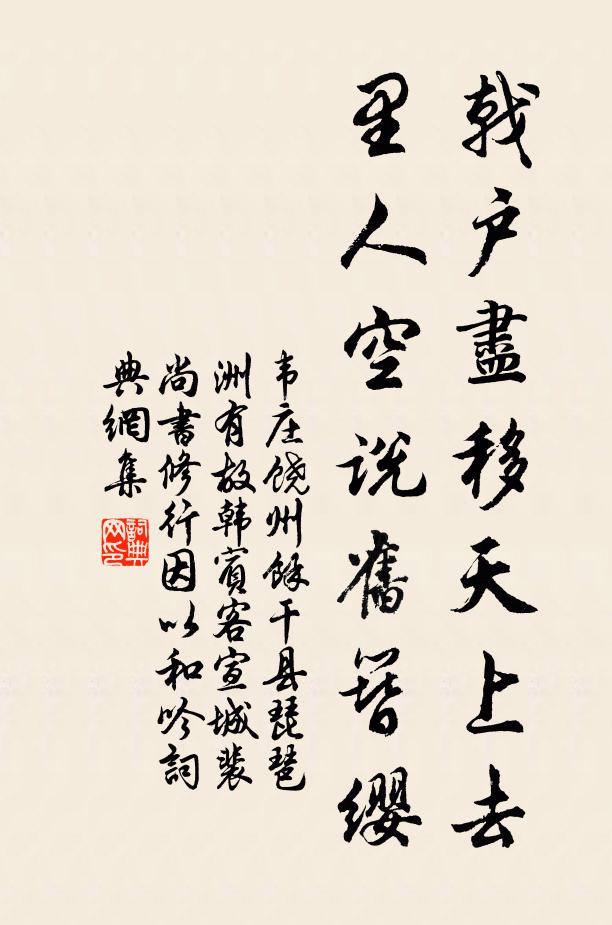 戟户盡移天上去
里人空说舊簪缨
韦庄饶州餘干县琵琶
洲有故韩賓客宣城裴
尚書修行因以和吟詞
典網集
詞典网印